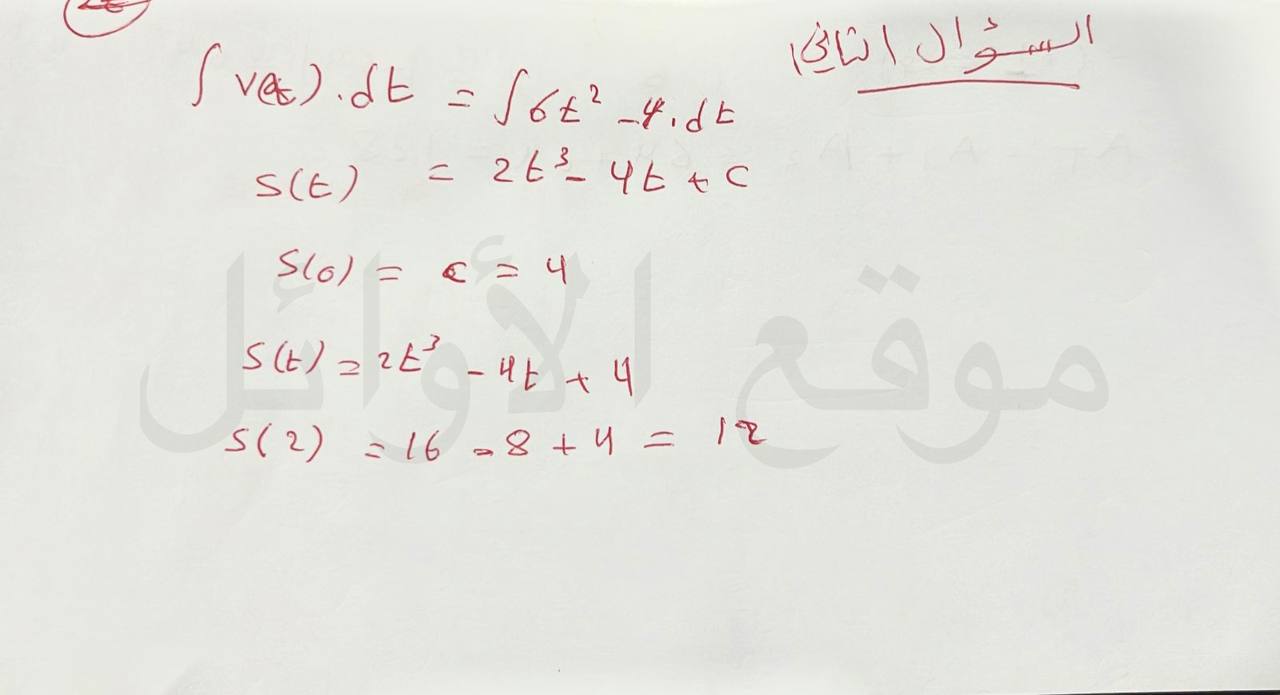 السؤال الثاني
∫ v(t).dt = ∫ 6t² - 4.dt
S(t) = 2t³ - 4t + c
S(0) = c = 4
S(t) = 2t³ - 4t + 4
S(2) = 16 - 8 + 4 = 12
موقع الأوائل